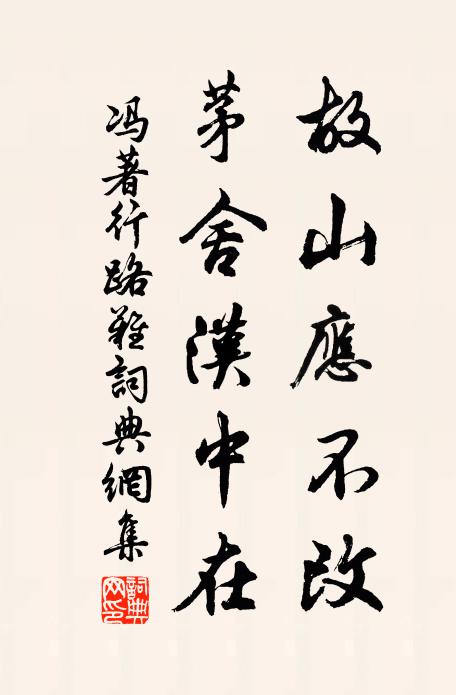 故山應不改
茅舍漢中在
冯著行路難詞典網集
詞典網印